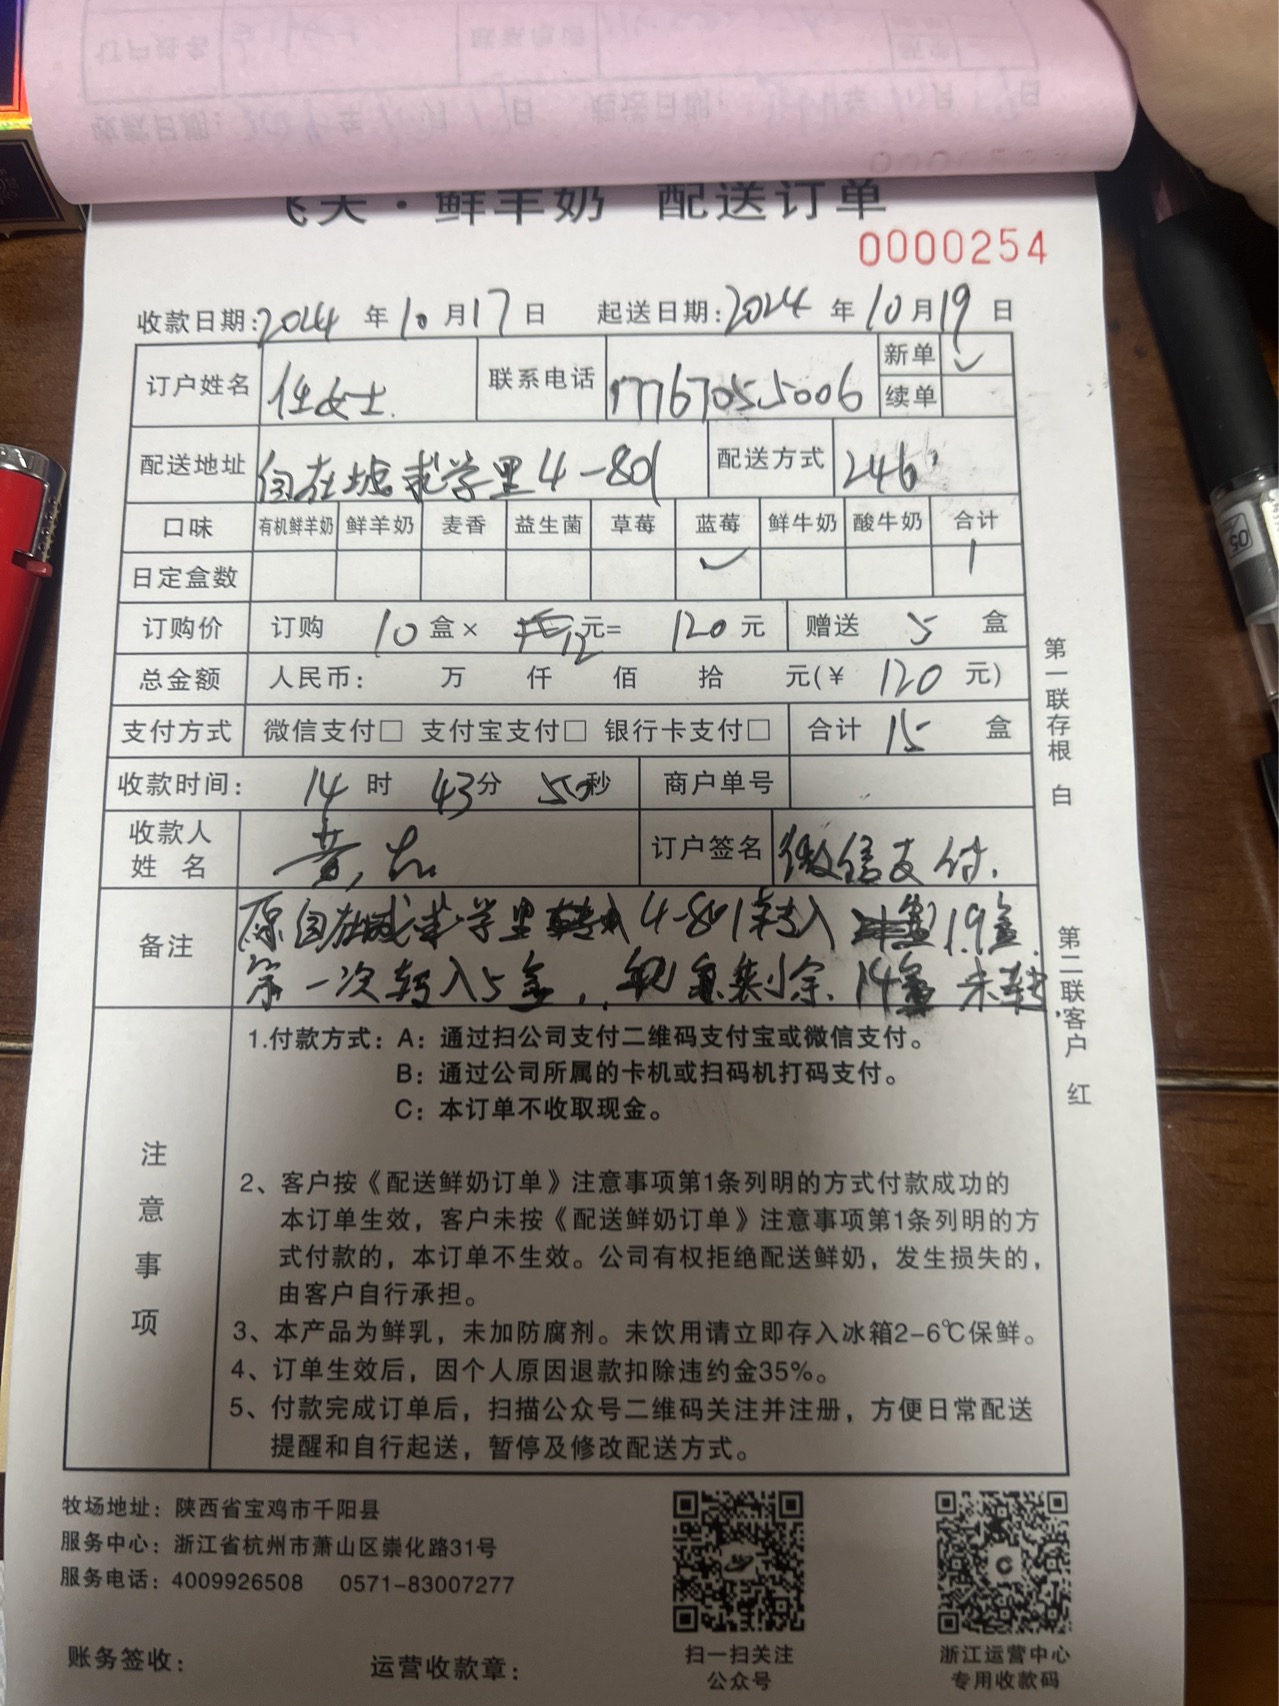 飞天·鲜羊奶 配送订单
0000254
收款日期:2024年10月17日 起送日期:2024年10月19日
订户姓名 任女士. 联系电话 17767055006 新单 ✓
续单
配送地址 自在城求学里4-801 配送方式 246
口味 有机鲜羊奶 鲜羊奶 麦香 益生菌 草莓 蓝莓 鲜牛奶 酸牛奶 合计
日定盒数 ✓ 1
订购价 订购 10 盒× 12元= 120元 赠送 5 盒
总金额 人民币: 万 仟 佰 拾 元(¥ 120 元)
支付方式 微信支付□ 支付宝支付□ 银行卡支付□ 合计 15 盒
收款时间: 14时 43分 50秒 商户单号
收款人姓名 订户签名 微信支付.
备注 原自在城求学里 4-801转入 19盒
第一次转入5盒, 剩余 14盒 未转.
第一联存根 白
第二联客户 红
注意事项
1.付款方式: A: 通过扫公司支付二维码支付宝或微信支付。
B: 通过公司所属的卡机或扫码机打码支付。
C: 本订单不收取现金。
2、客户按《配送鲜奶订单》注意事项第1条列明的方式付款成功的
本订单生效，客户未按《配送鲜奶订单》注意事项第1条列明的方
式付款的，本订单不生效。公司有权拒绝配送鲜奶，发生损失的，
由客户自行承担。
3、本产品为鲜乳，未加防腐剂。未饮用请立即存入冰箱2-6℃保鲜。
4、订单生效后，因个人原因退款扣除违约金35%。
5、付款完成订单后，扫描公众号二维码关注并注册，方便日常配送
提醒和自行起送，暂停及修改配送方式。
牧场地址: 陕西省宝鸡市千阳县
服务中心: 浙江省杭州市萧山区崇化路31号
服务电话: 4009926508 0571-83007277
扫一扫关注
公众号
浙江运营中心
专用收款码
账务签收: 运营收款章: